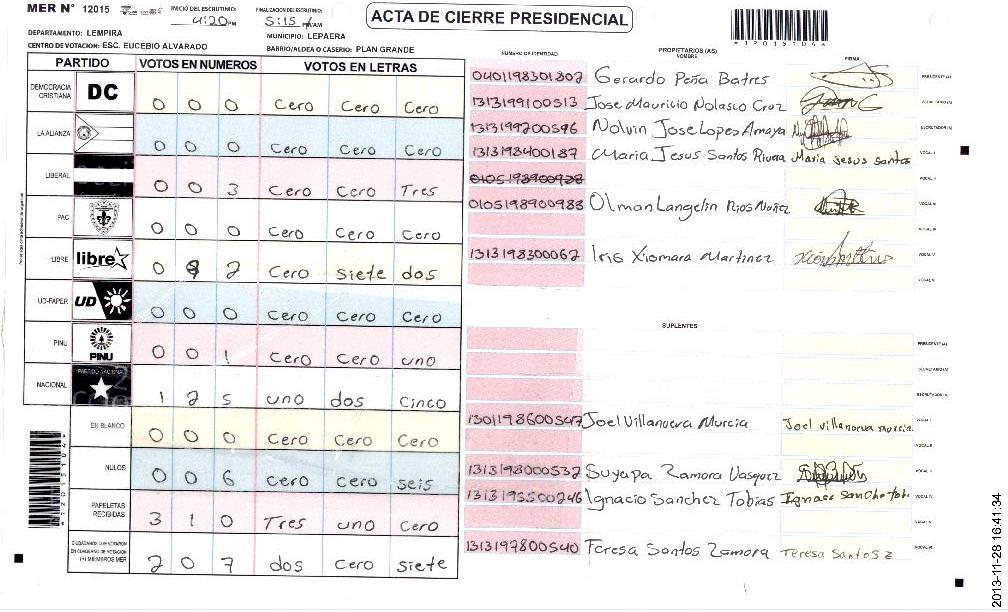 MER N° 12015
INICIO DEL ESCRUTINIO: 4:20 PM
FINALIZACION DEL ESCRUTINIO: 5:15
ACTA DE CIERRE PRESIDENCIAL
*12015104*
DEPARTAMENTO: LEMPIRA
MUNICIPIO: LEPAERA
CENTRO DE VOTACION: ESC. EUCEBIO ALVARADO
BARRIO/ALDEA O CASERIO: PLAN GRANDE
PARTIDO VOTOS EN NUMEROS VOTOS EN LETRAS
DEMOCRACIA CRISTIANA DC 0 0 0 Cero Cero Cero
LA ALIANZA 0 0 0 Cero Cero Cero
LIBERAL 0 0 3 Cero Cero Tres
PAC 0 0 0 Cero Cero Cero
LIBRE libre 0 2 Cero siete dos
UD-FAPER UD 0 0 0 Cero Cero Cero
PINU PINU 0 0 1 Cero Cero uno
NACIONAL PARTIDO NACIONAL 1 2 5 uno dos Cinco
EN BLANCO 0 0 0 Cero Cero Cero
NULOS 0 0 6 Cero Cero seis
PAPELETAS RECIBIDAS 3 1 0 Tres uno Cero
CIUDADANOS QUE VOTARON EN CUADERNO DE VOTACION (+) MIEMBROS MER 2 0 7 dos Cero siete
*12015104*
NUMERO DE IDENTIDAD
PROPIETARIOS (AS)
NOMBRE
FIRMA
0401198301807 Gerardo Peña Batres PRESIDENTE (A)
1313199100513 Jose Mauricio Nolasco Cruz SECRETARIO (A)
1313199200596 Nolvin Jose Lopes Amaya ESCRUTADOR (A)
1313198400187 Maria Jesus Santos Rivera Maria Jesus santos VOCAL I
VOCAL II
0105198900988 Olman Langelin Rios Nuñez VOCAL III
VOCAL IV
1313198300062 Iris Xiomara Martinez VOCAL V
VOCAL VI
SUPLENTES
PRESIDENTE (A)
SECRETARIO (A)
ESCRUTADOR (A)
1301198600547 Joel Villanueva Murcia Joel villanueva murcia VOCAL I
VOCAL II
1313198000532 Suyapa Zamora Vasquez VOCAL III
1313195500246 Ignacio Sanchez Tobias VOCAL IV
VOCAL V
1313197800540 Teresa Santos Zamora Teresa Santos Z VOCAL VI
2013-11-28 16:41:34